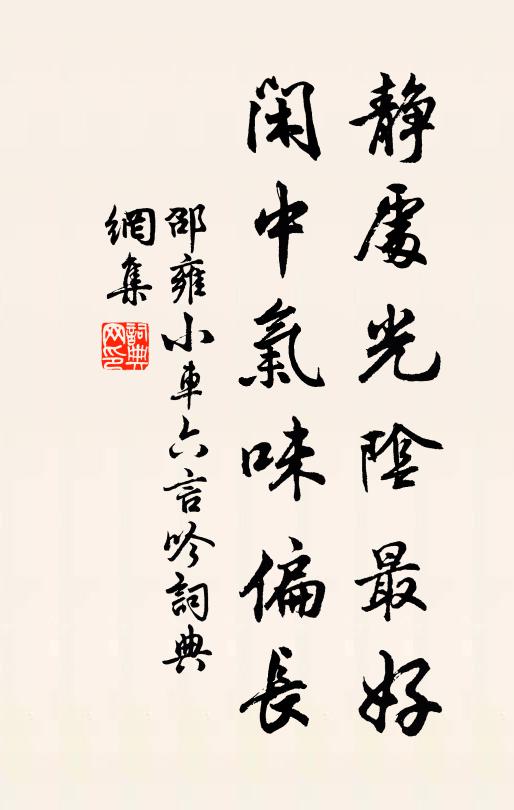 靜處光陰最好
閑中氣味偏長
邵雍小車六言吟詞典
網集
詞典
网印